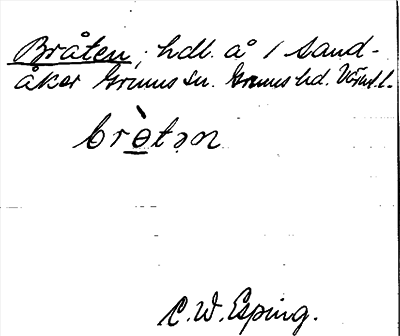 Bråten, hdl. å 1 Sand-
åker Grums sn. Grums hd. Värml. l.
brò̱tən
C. W. Esping.